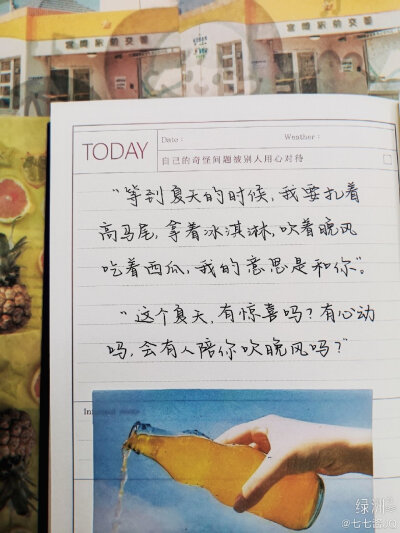 TODAY
Date:
Weather:
自己的奇怪问题被别人用心对待
“等到夏天的时候,我要扎着
高马尾,拿着冰淇淋,吹着晚风
吃着西瓜,我的意思是和你”。
“这个夏天,有惊喜吗?有心动
吗,会有人陪你吹晚风吗?”
绿洲